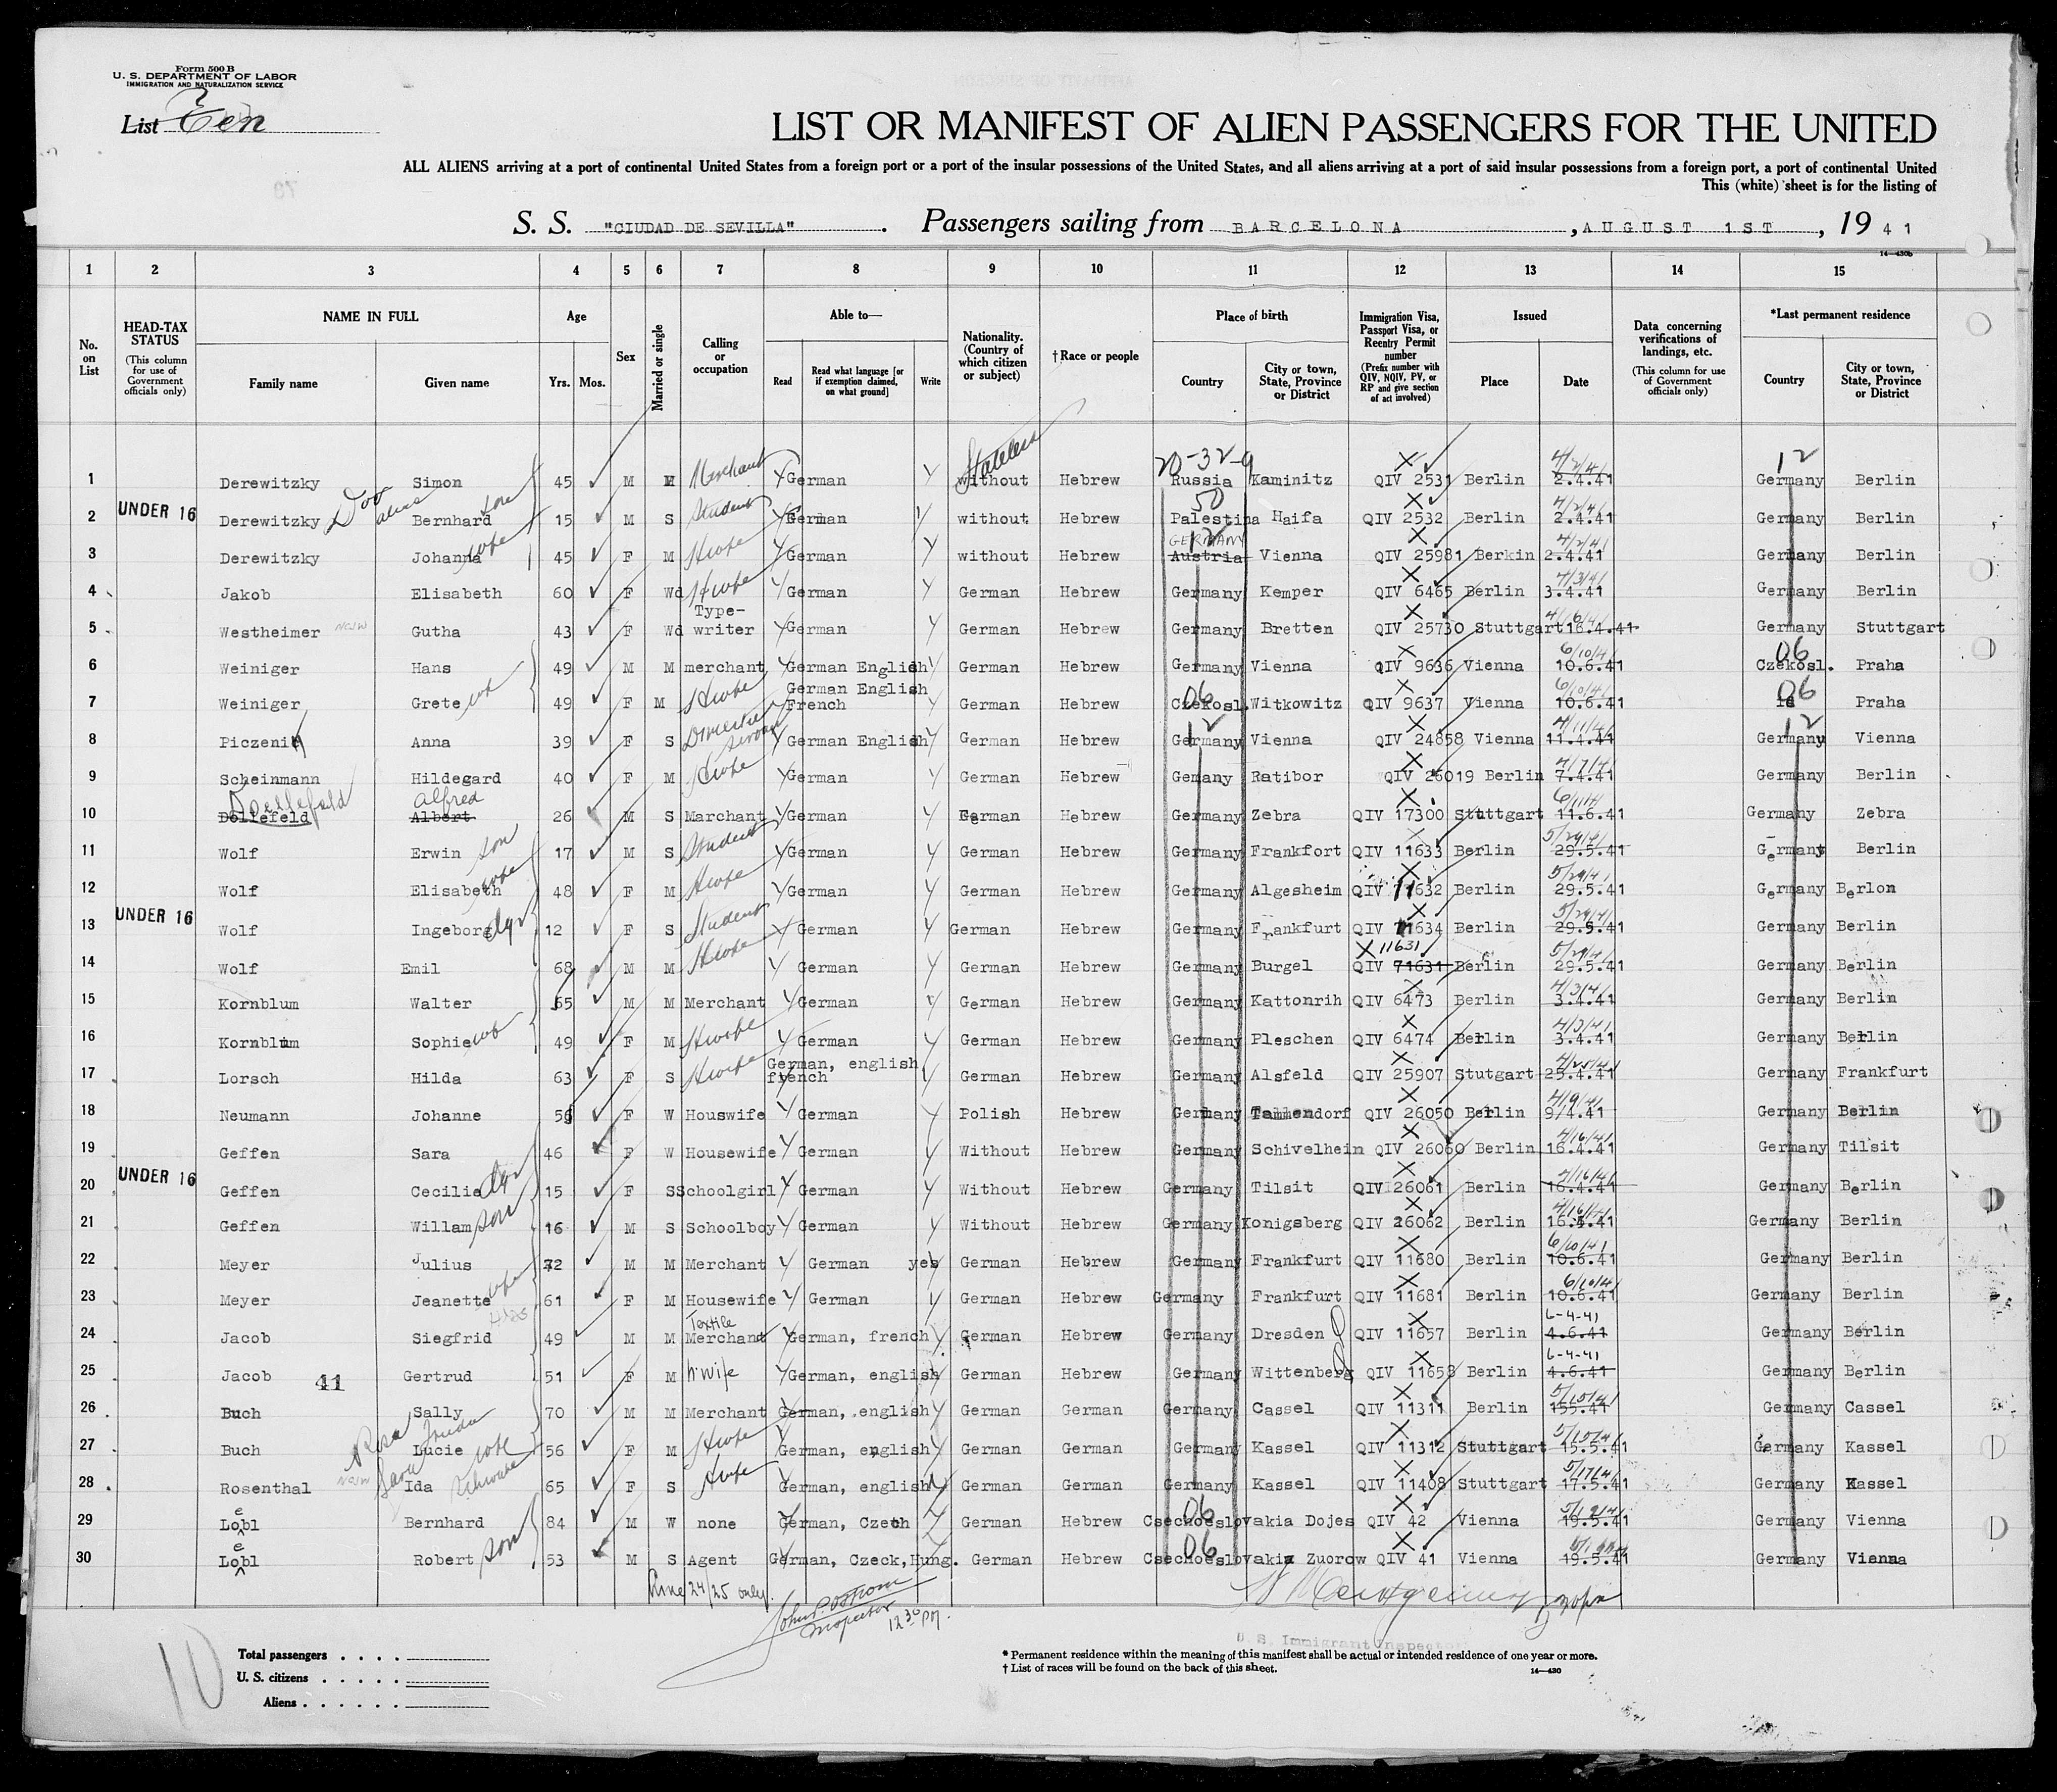 Form 500 B
U. S. DEPARTMENT OF LABOR
IMMIGRATION AND NATURALIZATION SERVICE
List Ten
LIST OR MANIFEST OF ALIEN PASSENGERS FOR THE UNITED
ALL ALIENS arriving at a port of continental United States from a foreign port or a port of the insular possessions of the United States, and all aliens arriving at a port of said insular possessions from a foreign port, a port of continental United
This (white) sheet is for the listing of
S. S. "CIUDAD DE SEVILLA". Passengers sailing from BARCELONA, AUGUST 1ST, 1941
14—430b
1 2 3 4 5 6 7 8 9 10 11 12 13 14 15
No. on List
HEAD-TAX STATUS (This column for use of Government officials only)
NAME IN FULL Family name Given name
Age Yrs. Mos.
Sex
Married or single
Calling or occupation
Able to— Read Read what language [or if exemption claimed, on what ground] Write
Nationality. (Country of which citizen or subject)
†Race or people
Place of birth Country City or town, State, Province or District
Immigration Visa, Passport Visa, or Reentry Permit number (Prefix number with QIV, NQIV, PV, or RP and give section of act involved)
Issued Place Date
Data concerning verifications of landings, etc. (This column for use of Government officials only)
*Last permanent residence Country City or town, State, Province or District
1 Derewitzky Simon 45 M M Merchant Y German Y without Stateless Hebrew 20-32-9 Russia Kaminitz QIV 2531 Berlin 4/2/41 2.4.41 12 Germany Berlin
2 UNDER 16 Derewitzky Dov alias Bernhard son 15 M S Student Y German Y without Hebrew 50 Palestina Haifa QIV 2532 Berlin 4/2/41 2.4.41 Germany Berlin
3 Derewitzky Johanna wife 45 F M Hwife Y German Y without Hebrew GERMANY 12 Austria Vienna QIV 25981 Berkin 4/2/41 2.4.41 Germany Berlin
4 Jakob Elisabeth 60 F Wd Hwife Y German Y German Hebrew Germany Kemper QIV 6465 Berlin 4/3/41 3.4.41 Germany Berlin
5 Westheimer NCJW Gutha 43 F Wd Type-writer Y German Y German Hebrew Germany Bretten QIV 25730 Stuttgart 4/16/41 16.4.41 Germany Stuttgart
6 Weiniger Hans 49 M M merchant Y German English Y German Hebrew Germany Vienna QIV 9636 Vienna 6/10/41 10.6.41 06 Czekosl. Praha
7 Weiniger Grete wf 49 F M Hwife Y German English French Y German Hebrew 06 Czekosl. Witkowitz QIV 9637 Vienna 6/10/41 10.6.41 06 Praha
8 Piczenik Anna 39 F S Domestic Servant Y German English Y German Hebrew 12 Germany Vienna QIV 24858 Vienna 4/11/41 11.4.41 12 Germany Vienna
9 Scheinmann Hildegard 40 F M Hwife Y German Y German Hebrew Gemany Ratibor QIV 26019 Berlin 4/7/41 7.4.41 Germany Berlin
10 Doellefeld Dollefeld Alfred Albert 26 M S Merchant Y German Y German Hebrew Germany Zebra QIV 17300 Stuttgart 6/11/41 11.6.41 Germany Zebra
11 Wolf Erwin son 17 M S Student Y German Y German Hebrew Germany Frankfort QIV 11633 Berlin 5/29/41 29.5.41 Germany Berlin
12 Wolf Elisabeth wife 48 F M Hwife Y German Y German Hebrew Germany Algesheim QIV 11632 Berlin 5/29/41 29.5.41 Germany Berlon
13 UNDER 16 Wolf Ingeborg dgr 12 F S Student Y German Y German Hebrew Germany Frankfurt QIV 11634 Berlin 5/29/41 29.5.41 Germany Berlin
14 Wolf Emil 68 M M Hwife Y German Y German Hebrew Germany Burgel QIV 71631 11631 Berlin 5/29/41 29.5.41 Germany Berlin
15 Kornblum Walter 65 M M Merchant Y German Y German Hebrew Germany Kattonrih QIV 6473 Berlin 4/3/41 3.4.41 Germany Berlin
16 Kornblum Sophie wf 49 F M Hwife Y German Y German Hebrew Germany Pleschen QIV 6474 Berlin 4/3/41 3.4.41 Germany Berlin
17 Lorsch Hilda 63 F S Hwife German, english french Y German Hebrew Germany Alsfeld QIV 25907 Stutgart 4/25/41 25.4.41 Germany Frankfurt
18 Neumann Johanne F W Houswife Y German Y Polish Hebrew Germany QIV 26050 Berlin 4/9/41 9/4.41 Germany Berlin
19 Geffen Sara 46 F W Housewife Y German Y Without Hebrew Germany Schivelhein QIV 26060 Berlin 4/16/41 16.4.41 Germany Tilsit
20 UNDER 16 Geffen Cecilie dgr 15 F S Schoolgirl Y German Y Without Hebrew Germany Tilsit QIV 26061 Berlin 4/16/41 16.4.41 Germany Berlin
21 Geffen Willam son 16 M S Schoolboy Y German Y Without Hebrew Germany Konigsberg QIV 26062 Berlin 4/16/41 16.4.41 Germany Berlin
22 Meyer Julius 72 M M Merchant Y German yes German Hebrew Germany Frankfurt QIV 11680 Berlin 6/10/41 10.6.41 Germany Berlin
23 Meyer Jeanette wife 61 F M Housewife Y German Y German Hebrew Germany Frankfurt QIV 11681 Berlin 6/10/41 10.6.41 Germany Berlin
24 Jacob Siegfrid 49 M M Textile Merchant Y German, french Y German Hebrew Germany Dresden QIV 11657 Berlin 6-4-41 4.6.41 Germany Berlin
25 Jacob 41 Gertrud 51 F M h'wife Y German, english Y German Hebrew Germany Wittenberg QIV 11658 Berlin 6-4-41 4.6.41 Germany Berlin
26 Buch Sally 70 M M Merchant German, english Y German German Germany Cassel QIV 11311 Berlin 5/15/41 155.41 Germany Cassel
27 Buch Rosa Lucie wife 56 F M Hwife German, english Y German German Germany Kassel QIV 11312 Stuttgart 5/15/41 15.5.41 Germany Kassel
28 Rosenthal NCJW Sara Ida 65 F S Hwife German, english Y German German Germany Kassel QIV 11408 Stuttgart 5/17/41 17.5.41 Germany Kassel
29 Loebl Bernhard 84 M W none German, Czech Y German Hebrew 06 Csechoeslovakia Dojes QIV 42 Vienna 5/19/41 19.5.41 Germany Vienna
30 Loebl Robert son 53 M S Agent German, Czeck, Hung. German Hebrew 06 Csechoeslovakia Zuorow QIV 41 Vienna 5/19/41 19.5.41 Germany Vienna
Line 24/25 only.
John P. Ostrom
Inspector 12 30 PM.
U. S. Immigrant Inspector
10
Total passengers
U. S. citizens
Aliens
* Permanent residence within the meaning of this manifest shall be actual or intended residence of one year or more.
† List of races will be found on the back of this sheet.
14—430